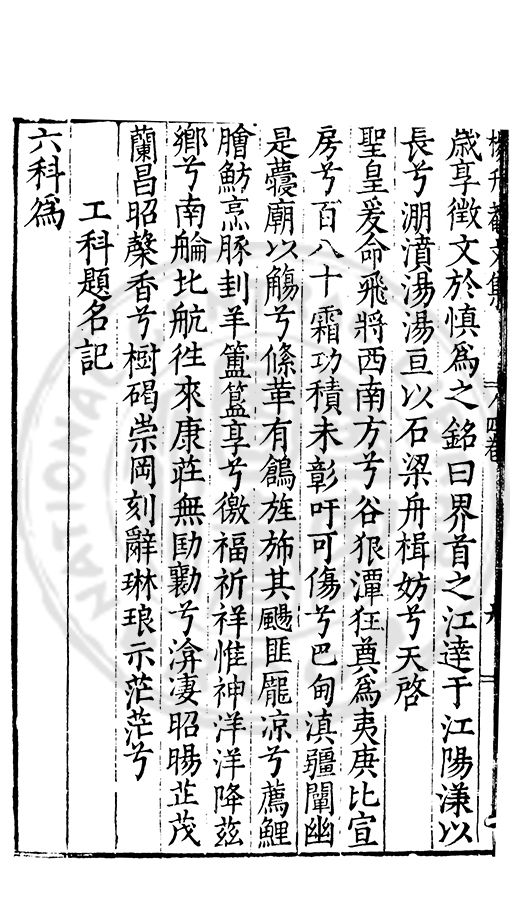 楊升菴文集 四卷
歲享徵文於慎爲之銘曰界首之江達于江陽溓以
長兮淜濆湯湯亘以石梁舟楫妨兮天啓
聖皇爰命飛將西南方兮谷狠潭狂奠爲夷庚比宣
房兮百八十霜功積未彰吁可傷兮巴甸滇疆闡幽
是虁廟以觴兮鞗革有鶬旌斾其颺匪厖凉兮薦鯉
膾魴烹豚刲羊簠簋享兮徼福祈祥惟神洋洋降茲
鄉兮南艑北航徃來康莊無劻勷兮渰凄昭暘芷茂
蘭昌昭馨香兮樹碣崇岡刻辭琳琅示茫茫兮
工科題名記
六科爲
NATIONAL